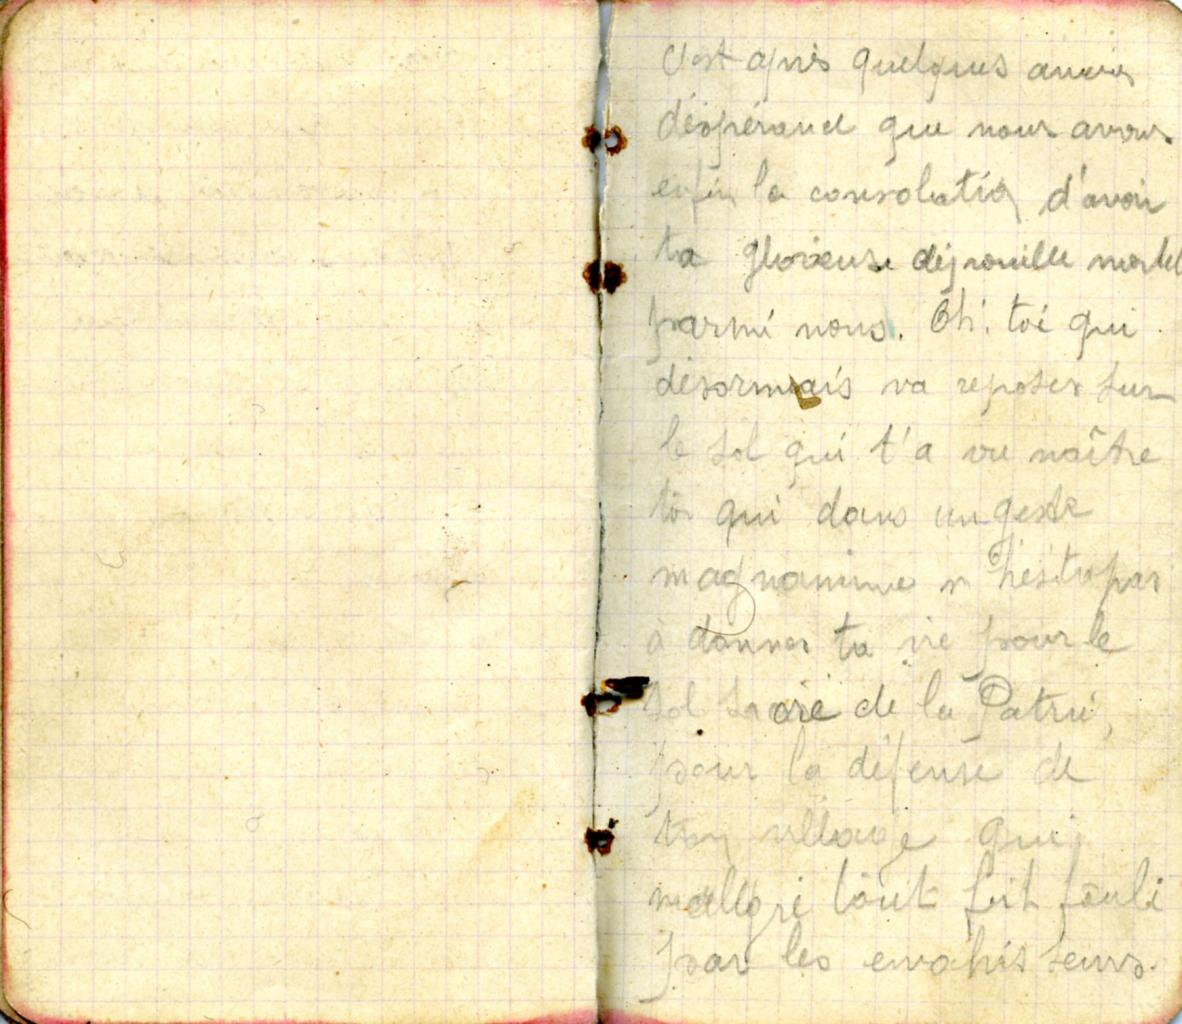 C'est après quelques années
désespérance que nous avons
enfin la consolation d'avoir
ta glorieuse dépouille mortel
parmi nous. Oh! toi qui
désormais va reposer sur
le sol qui t'a vu naître
toi qui dans un geste
magnanime n'hésita pas
à donner ta vie pour le
sol sacré de la Patrie,
pour la défense de
ton village qui
mallgré tout fut foulé
par les envahisseurs.